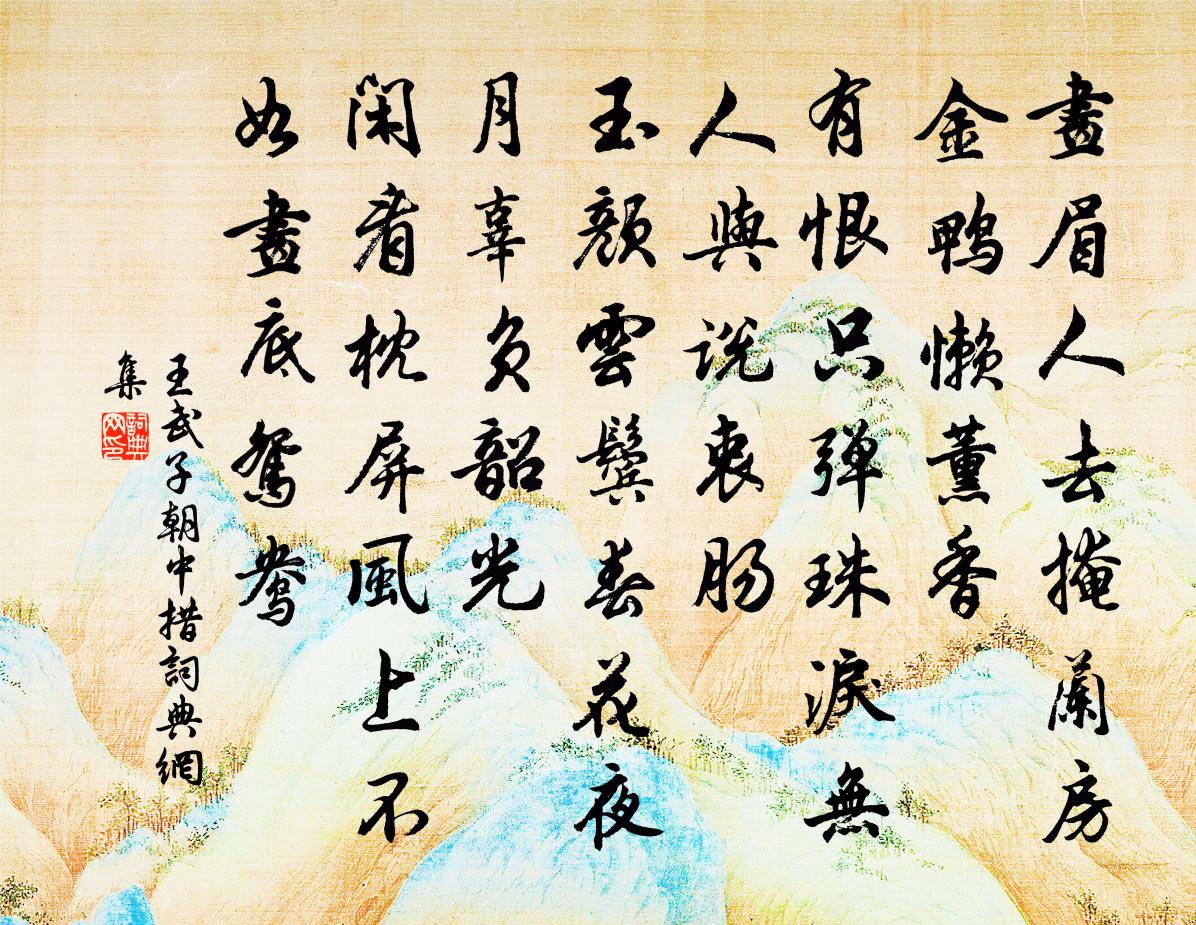 畫眉人去掩蘭房
金鴨懶薰香
有恨只彈珠淚無
人與說衷腸
玉顏雲鬢春花夜
月辜負韶光
閑看枕屏風上不
如畫底鴛鴦
王武子朝中措詞典網
集
詞典
网印